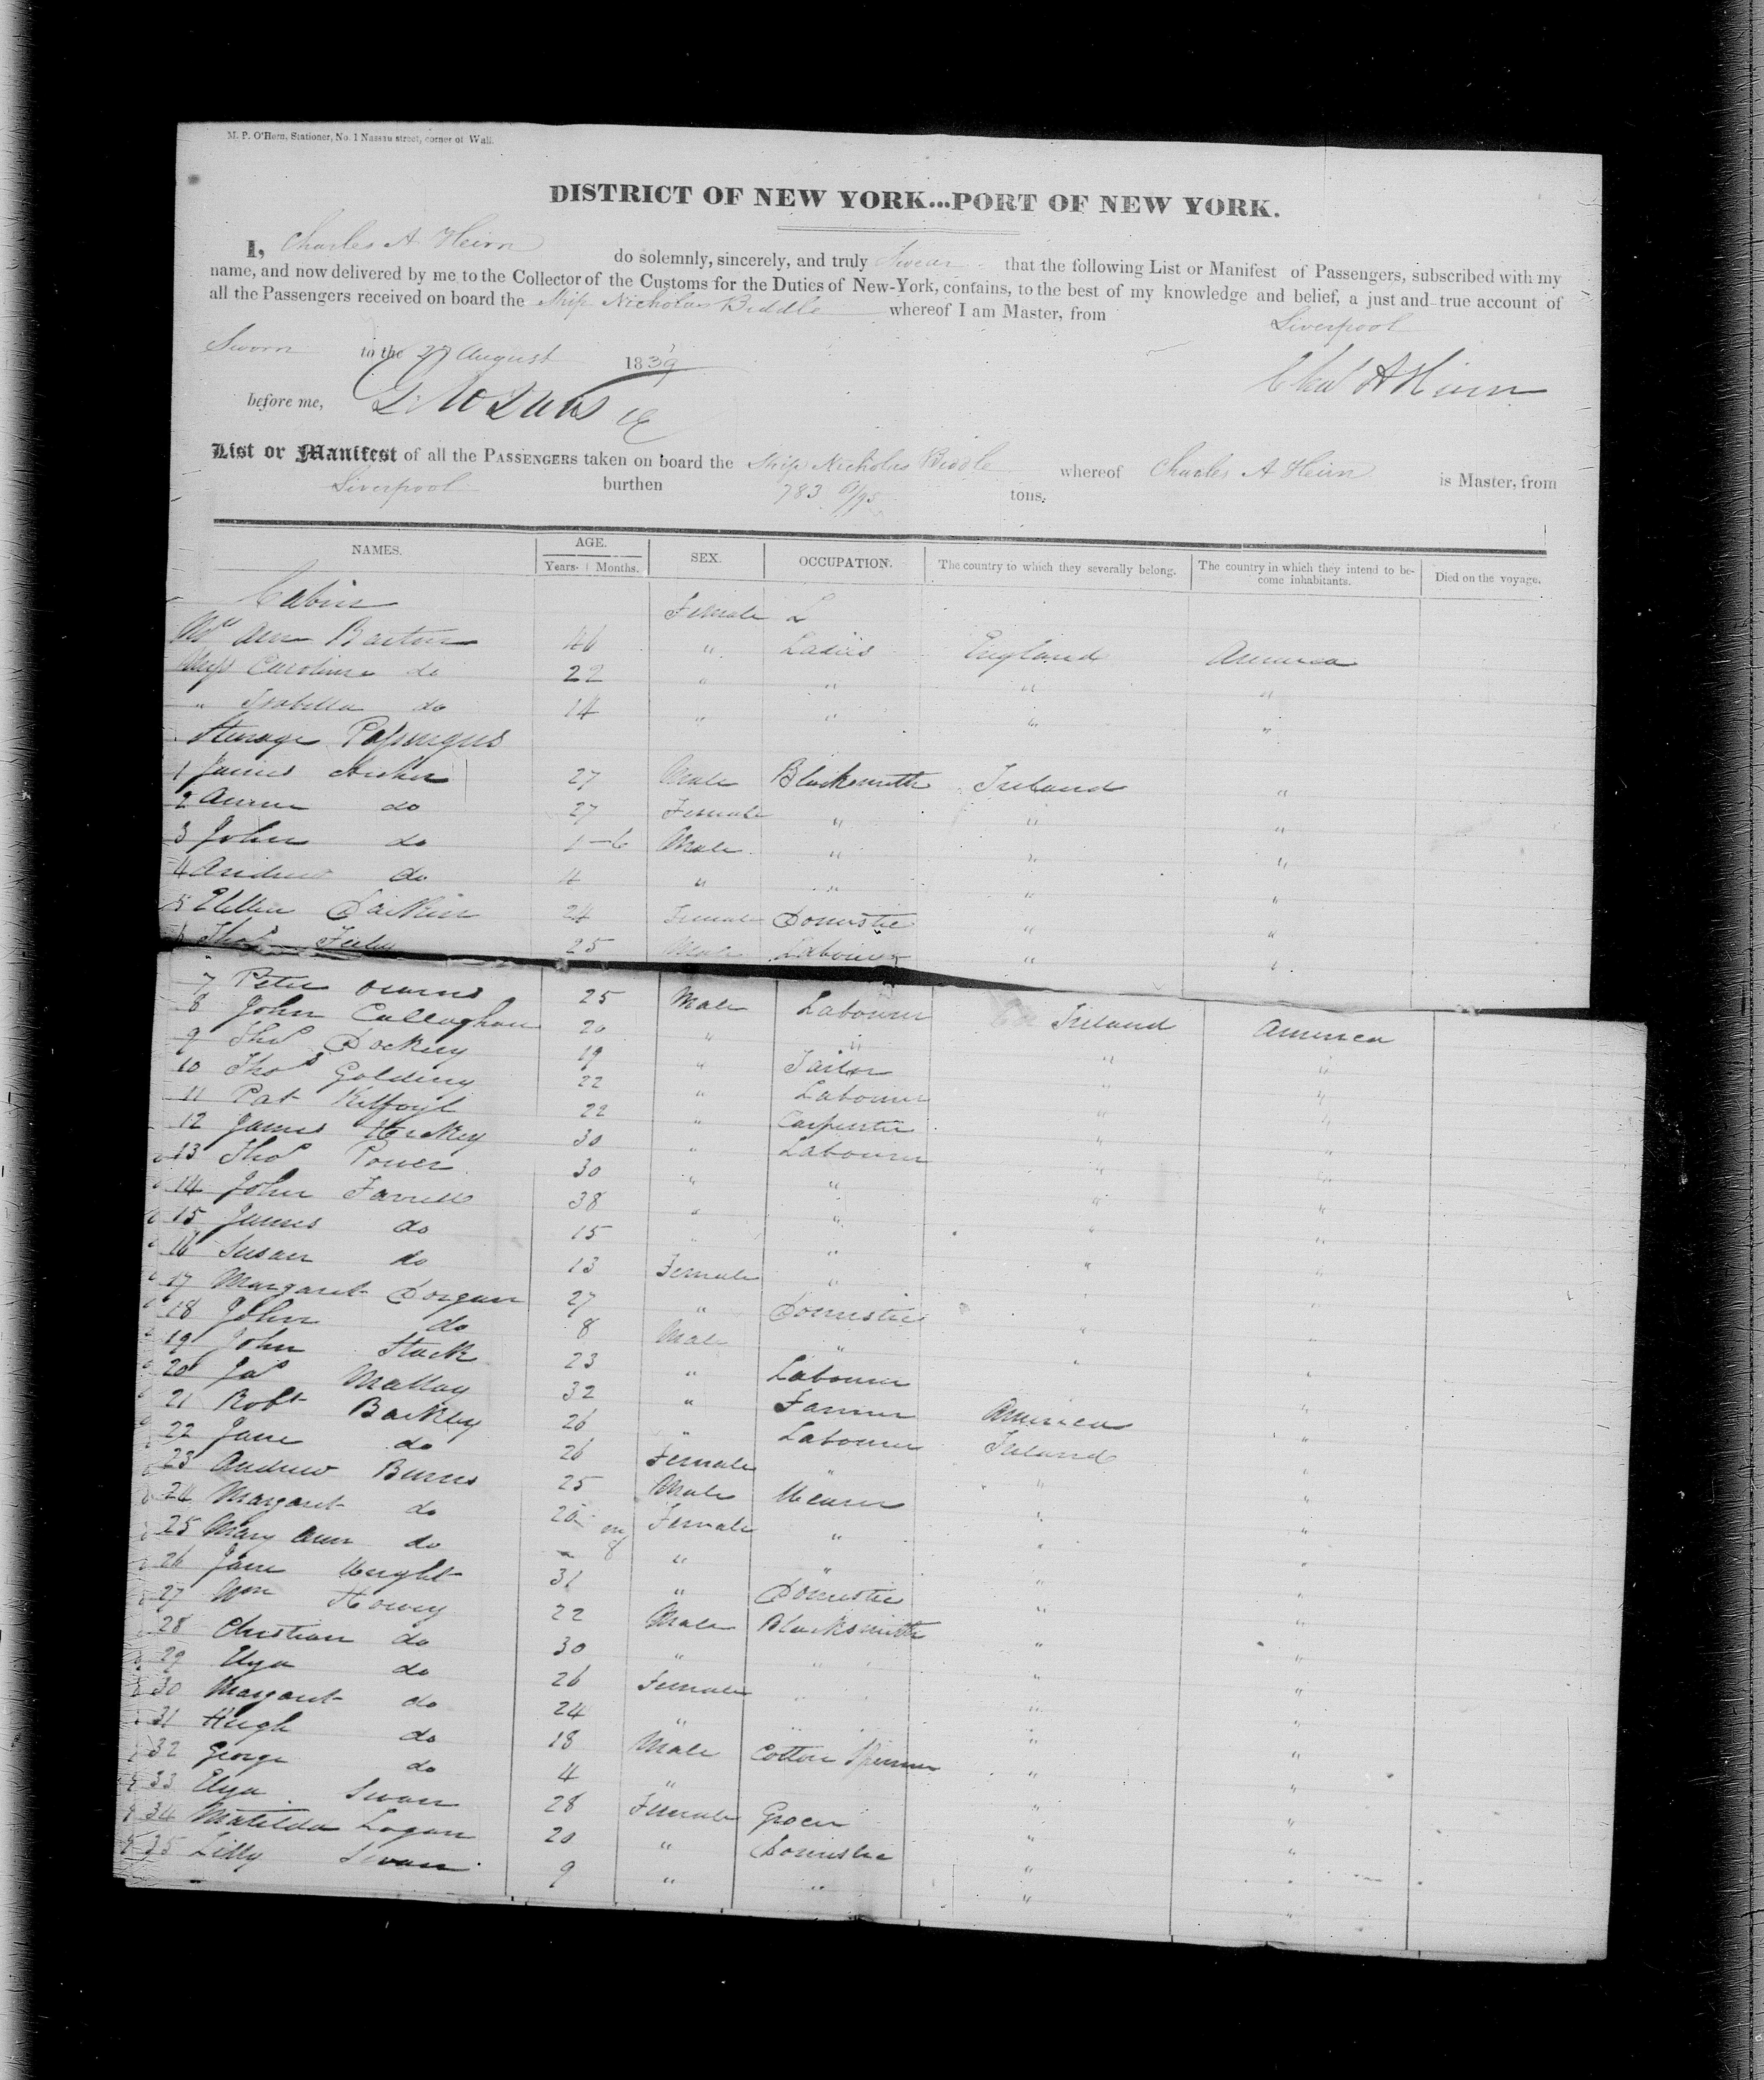 M. P. O'Hern, Stationer, No. 1 Nassau street, corner of Wall.
DISTRICT OF NEW YORK...PORT OF NEW YORK.
I, Charles A Heirn do solemnly, sincerely, and truly Swear that the following List or Manifest of Passengers, subscribed with my
name, and now delivered by me to the Collector of the Customs for the Duties of New-York, contains, to the best of my knowledge and belief, a just and true account of
all the Passengers received on board the Ship Nicholas Biddle whereof I am Master, from Liverpool
Sworn to the 27 August 1839
Chas A Heirn
before me,
List or Manifest of all the PASSENGERS taken on board the Ship Nicholas Biddle whereof Charles A Heirn is Master, from
Liverpool burthen 783 tons.
NAMES. AGE. SEX. OCCUPATION. The country to which they severally belong. The country in which they intend to be- Died on the voyage.
Years. Months. come inhabitants.
Cabin Female L
Mrs Ann 46 " Ladies England America
Miss Caroline do 22 " " " "
" Isabella do 14 " " " "
Steerage Passengers
1 James 27 Male Blacksmith Ireland "
2 do 27 Female " " "
3 John do 1-6 Male " " "
4 Andrew do 4 " " " "
5 Ellen 24 Female Domestic " "
6 Thos 25 Male Labourer " "
7 Peter Owens 25 Male Labourer Ireland America
8 John Callaghan 20 " " " "
9 Thos Dockery 19 " Tailor " "
10 Thos Golding 22 " Labourer " "
11 Pat Kilfoyl 22 " Carpenter " "
12 James Hickey 30 " Labourer " "
13 Thos Power 30 " " " "
14 John Farrell 38 " " " "
15 James do 15 " " " "
16 Susan do 13 Female " " "
17 Margaret Dorgan 27 " Domestic " "
18 John do 8 Male " " "
19 John Stack 23 " Labourer " "
20 Jas Mallay 32 " Farmer America "
21 Robt Barkley 26 " Labourer Ireland "
22 Jane do 26 Female " " "
23 Andrew Burns 25 Male Weaver " "
24 Margaret do 25 Female " " "
25 Mary Ann do 8 " " " "
26 Jane Wright 31 " Domestic " "
27 Wm Howey 22 Male Blacksmith " "
28 Christian do 30 " " " "
29 Eliza do 26 Female " " "
30 Margaret do 24 " " " "
31 Hugh do 18 Male Cotton Spinner " "
32 George do 4 " " "
33 Eliza Swan 28 Female Grocer " "
34 Matilda Logan 20 " Domestic " "
35 Lilly Swan 9 " " " "